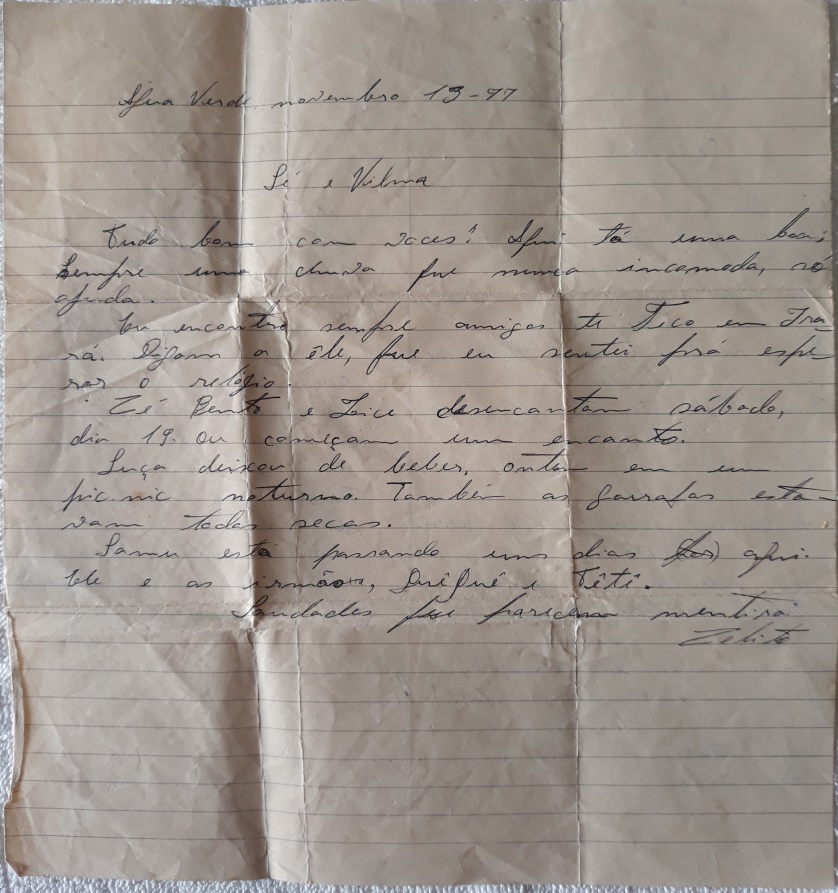 Água Verde, novembro 13-77
Sí e Vilma
Tudo bom com voces? Aqui tá uma boa;
sempre uma chuva que nunca incomoda, só
ajuda.
Eu encontro sempre amigos te Tico em Ira-
rá. Digam a êle, que eu sentei prá espe-
rar o relógio.
Zé Bento e Joice desencantam sábado,
dia 19. Ou começam um encanto.
Luça deixou de beber, ontem em um
pic.nic noturno. Também as garrafas esta-
vam todas secas.
Samu está passando uns dias aqui.
Ele e as irmãs, Quêquê e Têtê.
Saudades que parecem mentira
Zelito